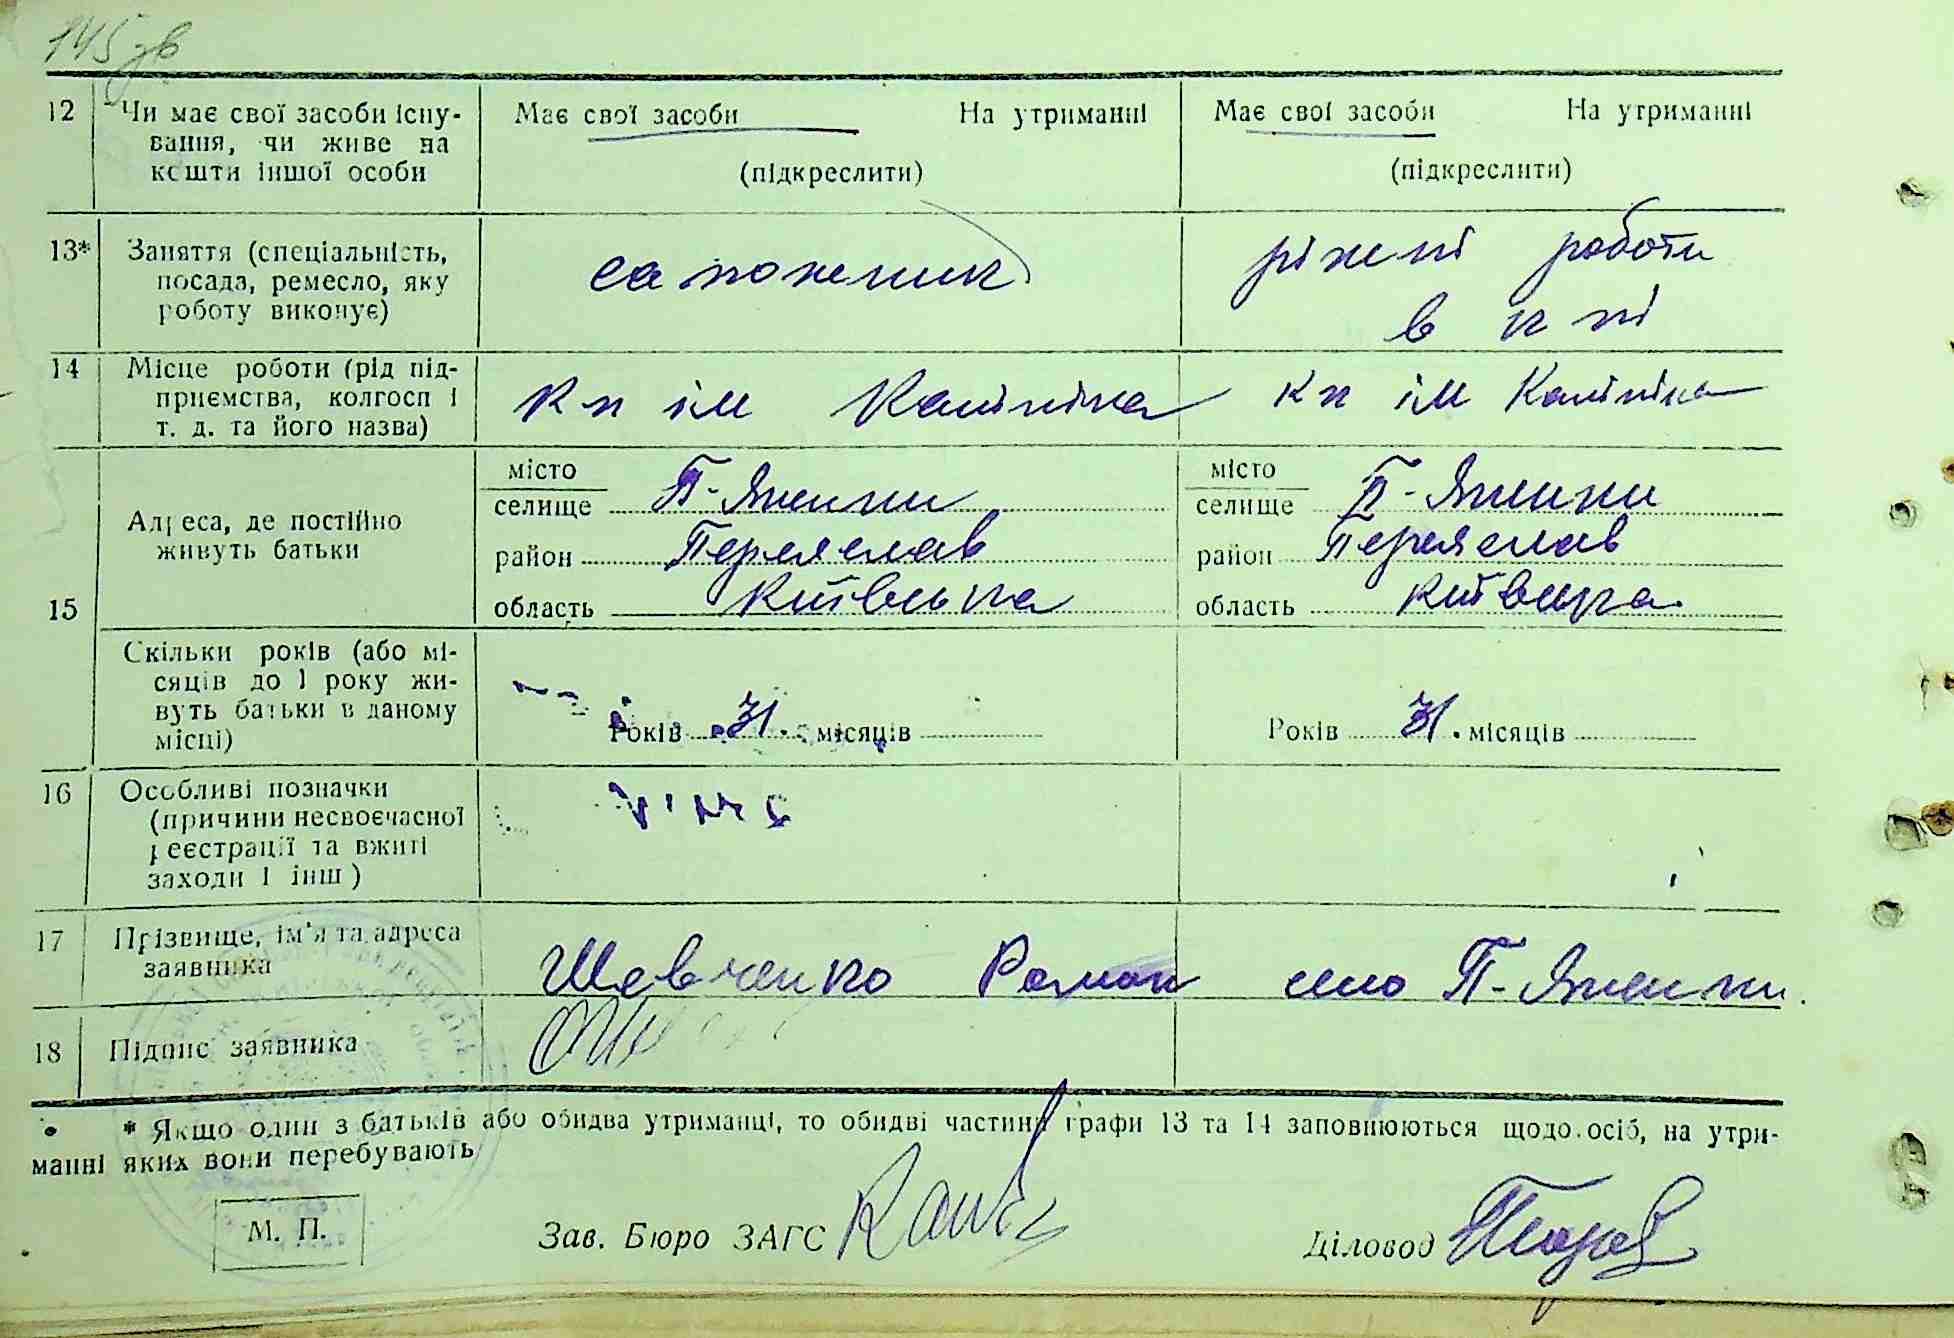 145 зв
12 Чи має свої засоби існу- Має свої засоби На утриманні Має свої засоби На утриманні
вання, чи живе на
кошти іншої особи (підкреслити) (підкреслити)
13* Заняття (спеціальність, сапожник ріжні роботи
посада, ремесло, яку
роботу виконує) в к пі
14 Місце роботи (рід під- Кп ім Калініна кп ім Калініна
приємства, колгосп і
т. д. та його назва)
місто місто
селище П-Яненки селище П-Яненки
Адреса, де постійно
живуть батьки район Переяслав район Переяслав
15 область Київська область Київська
Скільки років (або мі-
сяців до 1 року жи-
вуть батьки в даному Років 31. місяців Років 31. місяців
місці)
16 Особливі позначки
(причини несвоєчасної
реєстрації та вжиті
заходи і інш)
17 Прізвище, ім'я та адреса Шевченко Роман село П-Яненки.
заявника
18 Підпис заявника
* Якщо один з батьків або обидва утриманці, то обидві частини графи 13 та 14 заповнюються щодо осіб, на утри-
манні яких вони перебувають
М. П. Зав. Бюро ЗАГС Діловод